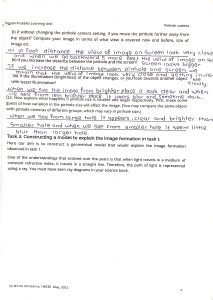 Vigyan Pratibha Learning Unit Pinhole camera
(c) If without changing the pinhole camera setting, if you move the pinhole further away from
the object? Compare your image in terms of what view is covered now and before, size of
image etc.
at in foot distance the view of image on screen look very close
but when we go backward 5 more feet the view of image on
(d) If you increase the distance between the pinhole and the screen?
If we increase the distance between pinhole and screen we
notice that the view of image look very close and getting
(e) If the illumination (brightness) of the object changes, or you look towards another object with more
light?
when we see the image from brighter place it look clear and when
we see from less brighter place it looks blur and sometime dark.
Q2. Now explore what happens if pinhole size is smaller and larger respectively. First, make some
guess of how variation in the pinhole size will affect the image. (You may compare the same object
with pinhole cameras of different groups, which may vary in pinhole size.)
when we see from large hole it appears clear and brighter than
smaller hole and when we see from smaller hole it seems little
blur than larger hole.
Task 3: Constructing a model to explain the image formation in task 1
Here our aim is to construct a geometrical model that would explain the image formation
observed in task 1.
One of the understandings that evolved over the years is that when light travels in a medium of
constant refractive index, it travels in a straight line. Therefore, the path of light is represented
using a ray. You must have seen ray diagrams in your science book.
HBCSE, May, 2022.